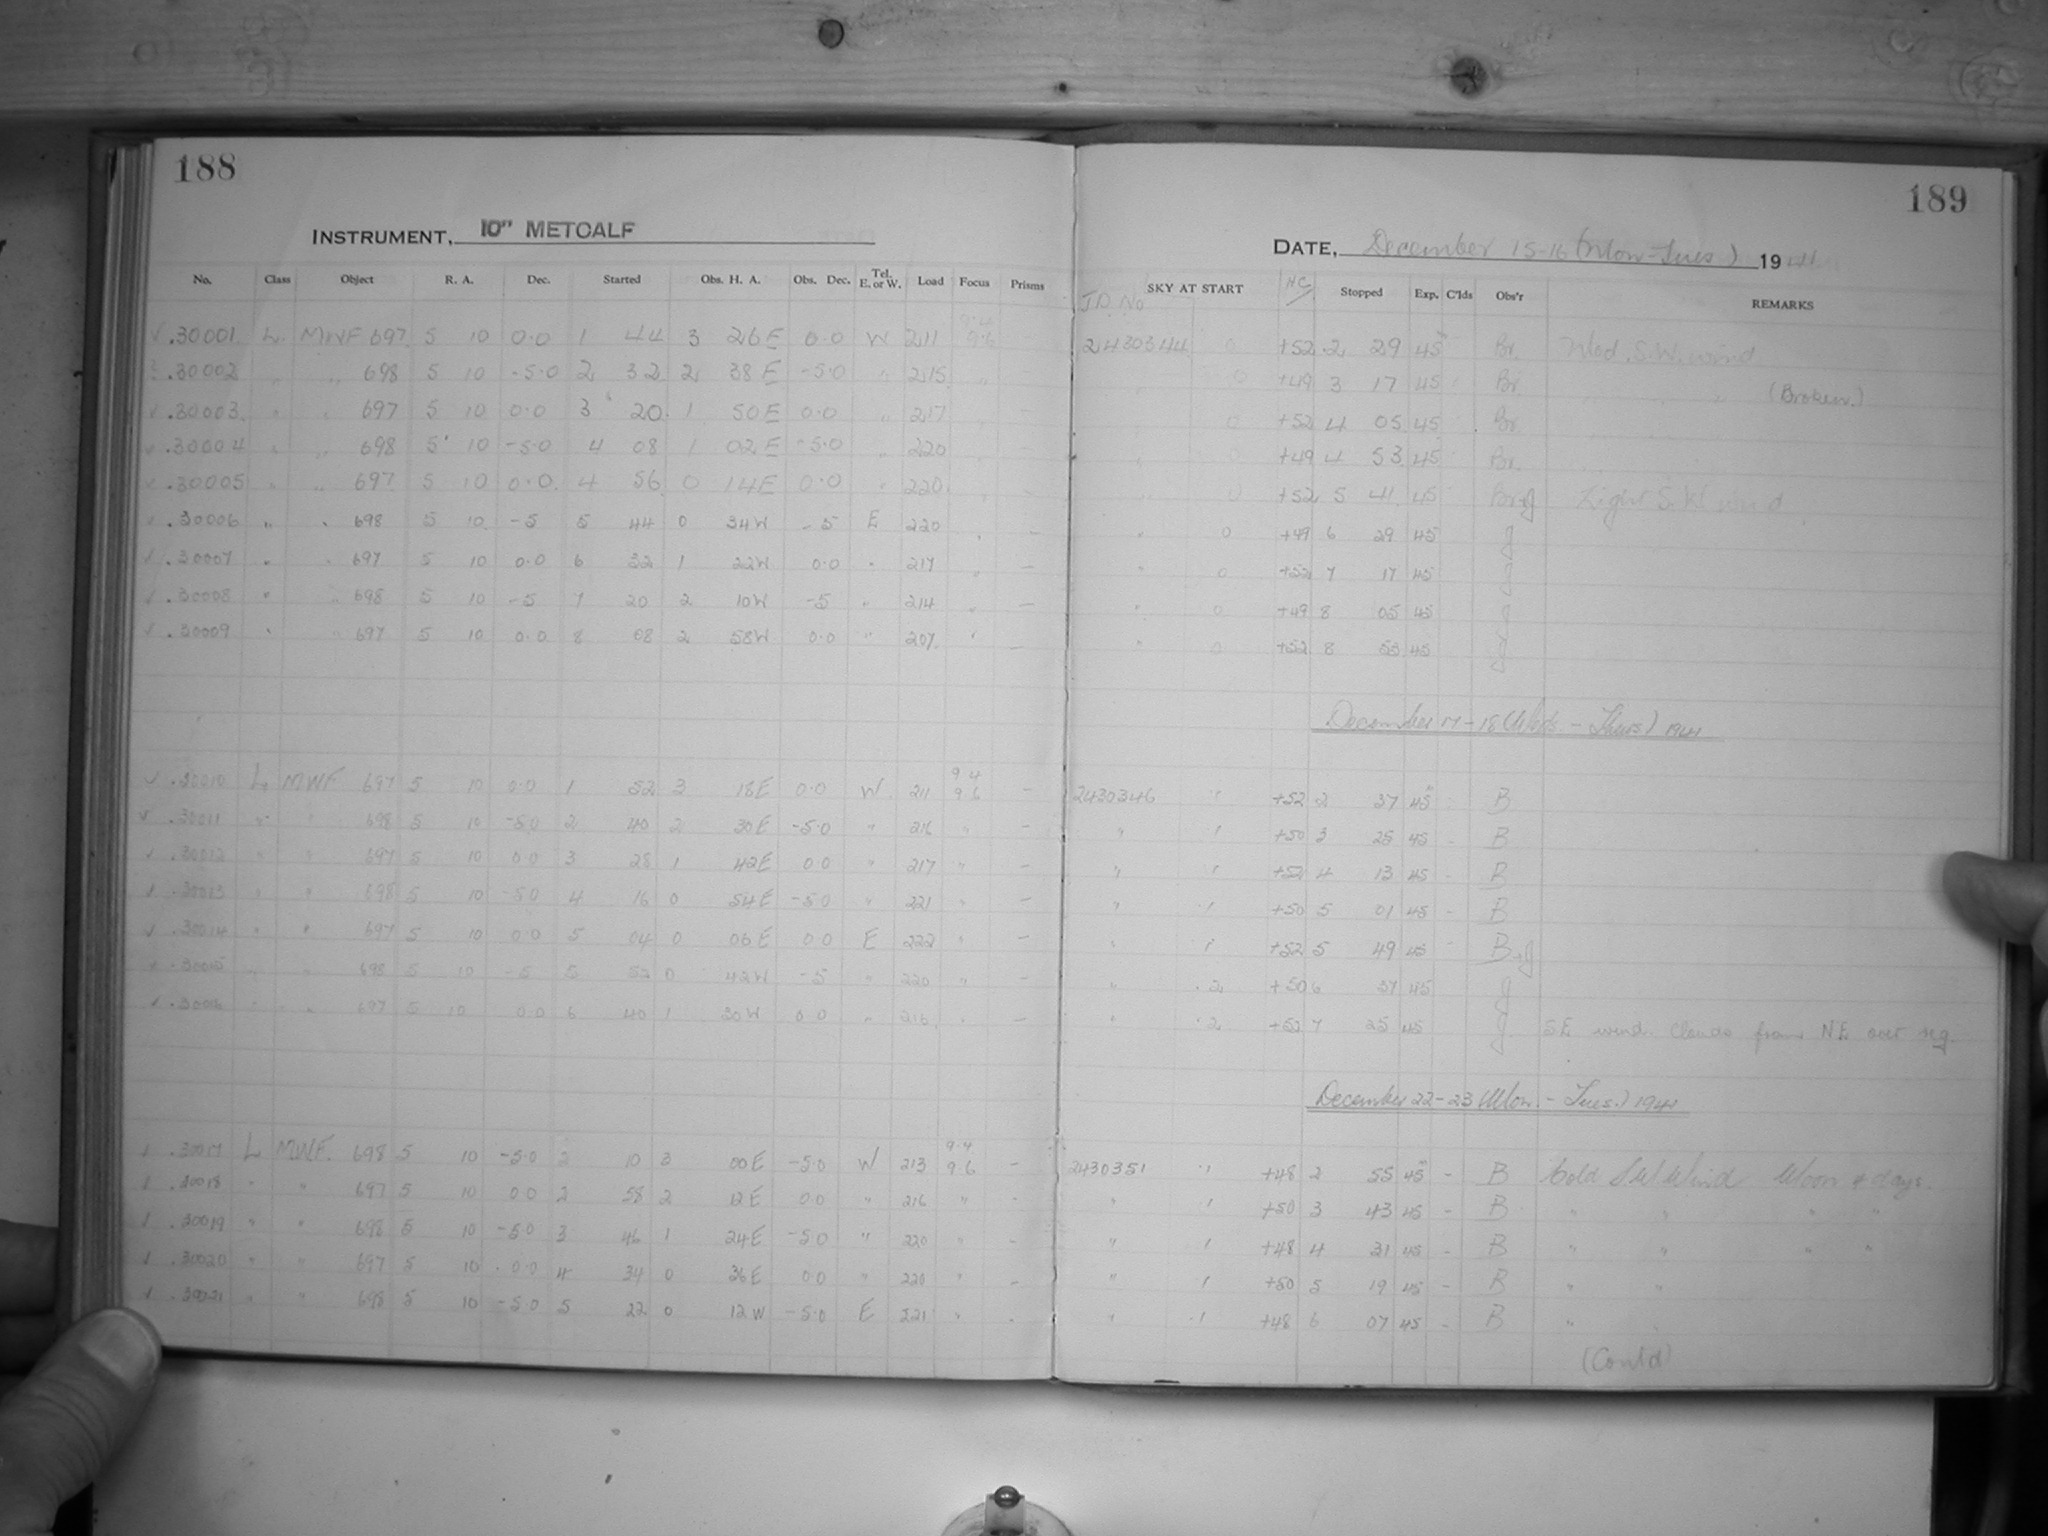 188
INSTRUMENT, 10" METCALF
No. Class Object R. A. Dec. Started Obs. H. A. Obs. Dec. Tel. E. or W. Load Focus Prisms
9.4
√ .30001 L. MWF 697 5 10 0.0 1 44 3 26 E 0.0 W 211 9.6
.30002 " " 698 5 10 -5.0 2 32 2 38 E -5.0 " 215 "
√ .30003 " " 697 5 10 0.0 3 20 1 50 E 0.0 " 217
√ .30004 " " 698 5 10 -5.0 4 08 1 02 E -5.0 " 220 "
√ .30005 " " 697 5 10 0.0 4 56 0 14 E 0.0 " 220 "
√ .30006 " " 698 5 10 -5 5 44 0 34 W -5 E 220 " –
√ .30007 " " 697 5 10 0.0 6 32 1 22 W 0.0 " 217 " –
√ .30008 " " 698 5 10 -5 7 20 2 10 W -5 " 214 " –
√ .30009 " " 697 5 10 0.0 8 08 2 58 W 0.0 " 207 " –
9.4
√ .30010 L MWF 697 5 10 0.0 1 52 3 18 E 0.0 W 211 9.6 –
√ .30011 " " 698 5 10 -5.0 2 40 2 30 E -5.0 " 216 " –
√ .30012 " " 697 5 10 0.0 3 28 1 42 E 0.0 " 217 " –
√ .30013 " " 698 5 10 -5.0 4 16 0 54 E -5.0 " 221 " –
√ .30014 " " 697 5 10 0.0 5 04 0 06 E 0.0 E 222 " –
√ .30015 " " 698 5 10 -5 5 52 0 42 W -5 " 220 " –
√ .30016 " " 697 5 10 0.0 6 40 1 30 W 0.0 " 216 " –
9.4
√ .30017 L MWF. 698 5 10 -5.0 2 10 3 00 E -5.0 W 213 9.6 –
√ .30018 " " 697 5 10 0.0 2 58 2 12 E 0.0 " 216 " –
√ .30019 " " 698 5 10 -5.0 3 46 1 24 E -5.0 " 220 " –
√ .30020 " " 697 5 10 0.0 4 34 0 36 E 0.0 " 220 " –
√ .30021 " " 698 5 10 -5.0 5 22 0 12 W -5.0 E 221 " -
189
DATE, December 15-16 (Mon-Tues) 1941
J.D. No SKY AT START HC Stopped Exp. C'lds Obs'r REMARKS
2430344 0 +52 2 29 45 Br. Mod. S.W. wind
" 0 +49 3 17 45 Br. " " " (Broken.)
" 0 +52 4 05 45 Br.
" 0 +49 4 53 45 Br.
" 0 +52 5 41 45 Br+J Light S.W wind
" 0 +49 6 29 45 J
" 0 +52 7 17 45 J
" 0 +49 8 05 45 J
" 0 +52 8 53 45 J
December 17-18 (Weds. - Thurs) 1941
2430346 " +52 2 37 45 B
" 1 +50 3 25 45 - B
" 1 +52 4 13 45 - B
" 1 +50 5 01 45 - B
" 1 +52 5 49 45 - B+J
" 2 +50 6 37 45 J
" 2 +52 7 25 45 J SE wind. Clouds from NE over reg.
December 22-23 (Mon. - Tues.) 1941
2430351 1 +48 2 55 45 - B Cold SW Wind Moon 4 days.
" 1 +50 3 43 45 - B " " " "
" 1 +48 4 31 45 - B " " " "
" 1 +50 5 19 45 - B " "
" 1 +48 6 07 45 - B "
(Cont'd)